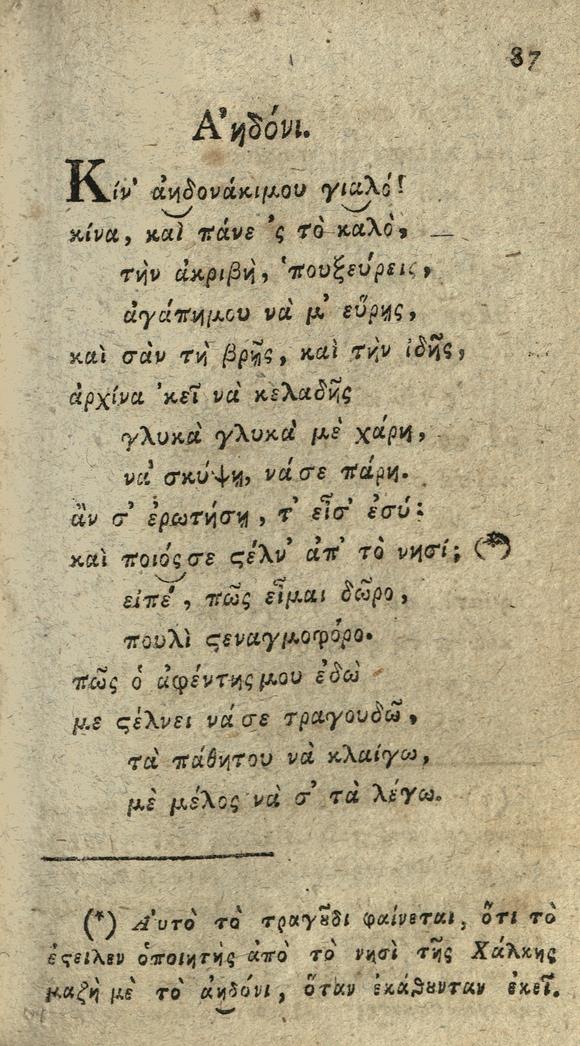 87
Ἀηδόνι.
Κίν' ἀηδονάκιμου γιαλό!
κίνα, καὶ πάνε 'ς τὸ καλὸ,
τὴν ἀκριβὴ, 'πουξεύρεις,
ἀγάπημου νὰ μ' εὕρῃς,
καὶ σὰν τὴ βρῇς, καὶ τὴν ἰδῇς,
ἀρχίνα 'κεῖ νὰ κελαδῇς
γλυκὰ γλυκὰ μὲ χάρη,
νὰ σκύψῃ, νάσε πάρη.
ἂν σ' ἐρωτήσῃ, τ' εἶσ' ἐσύ:
καὶ ποιόςσε ϛέλν' ἀπ' τὸ νησί; (*)
εἰπὲ, πῶς εἶμαι δῶρο,
πουλὶ ϛεναγμοφόρο.
πῶς ὁ ἀφέντηςμου ἐδὼ
με ϛέλνει νάσε τραγουδῶ,
τὰ πάθητου νὰ κλαίγω,
μὲ μέλος νὰ σ' τὰ λέγω.
(*) Αὐτὸ τὸ τραγȣ͂δι φαίνεται, ὅτι τὸ
ἔϛειλεν ὁποιητὴς ἀπὸ τὸ νησὶ τῆς Χάλκης
μαζὴ μὲ τὸ ἀηδόνι, ὅταν ἐκάθȣνταν ἐκεῖ.